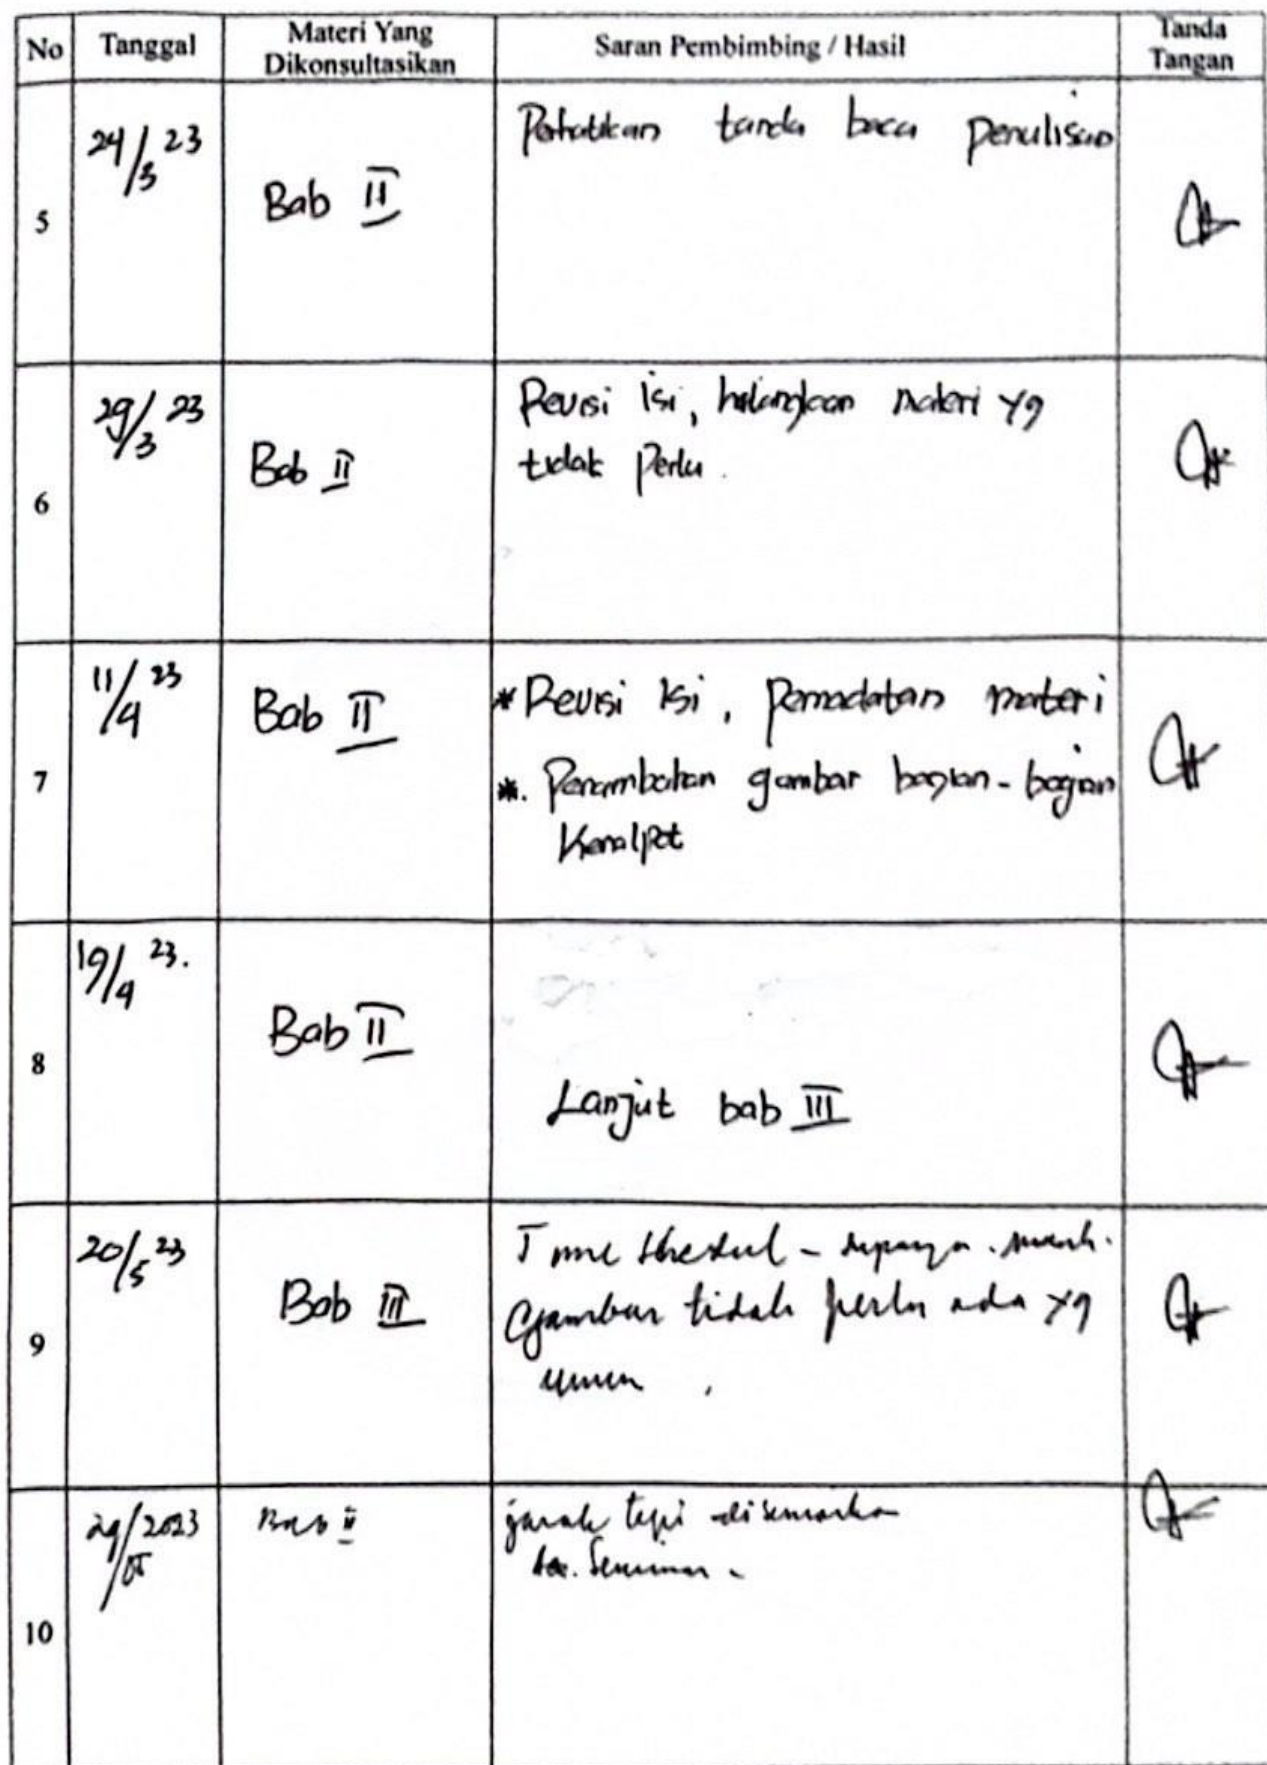 No
Tanggal
Materi Yang
Dikonsultasikan
Saran Pembimbing / Hasil
Tanda
Tangan
5
24/3 23
Bab II
Perhatikan tanda baca penulisan
6
29/3 23
Bab II
Revisi isi, hilangkan materi yg
tidak perlu.
7
11/4 23
Bab II
* Revisi isi, pemadatan materi
*. Penambahan gambar bagian-bagian
Kenalpot
8
19/4 23.
Bab II
Lanjut bab III
9
20/5 23
Bab III
Time
Gambar tidak perlu ada yg
umum
10
29/2023
Bab
jarak tepi
Acc. Seminar